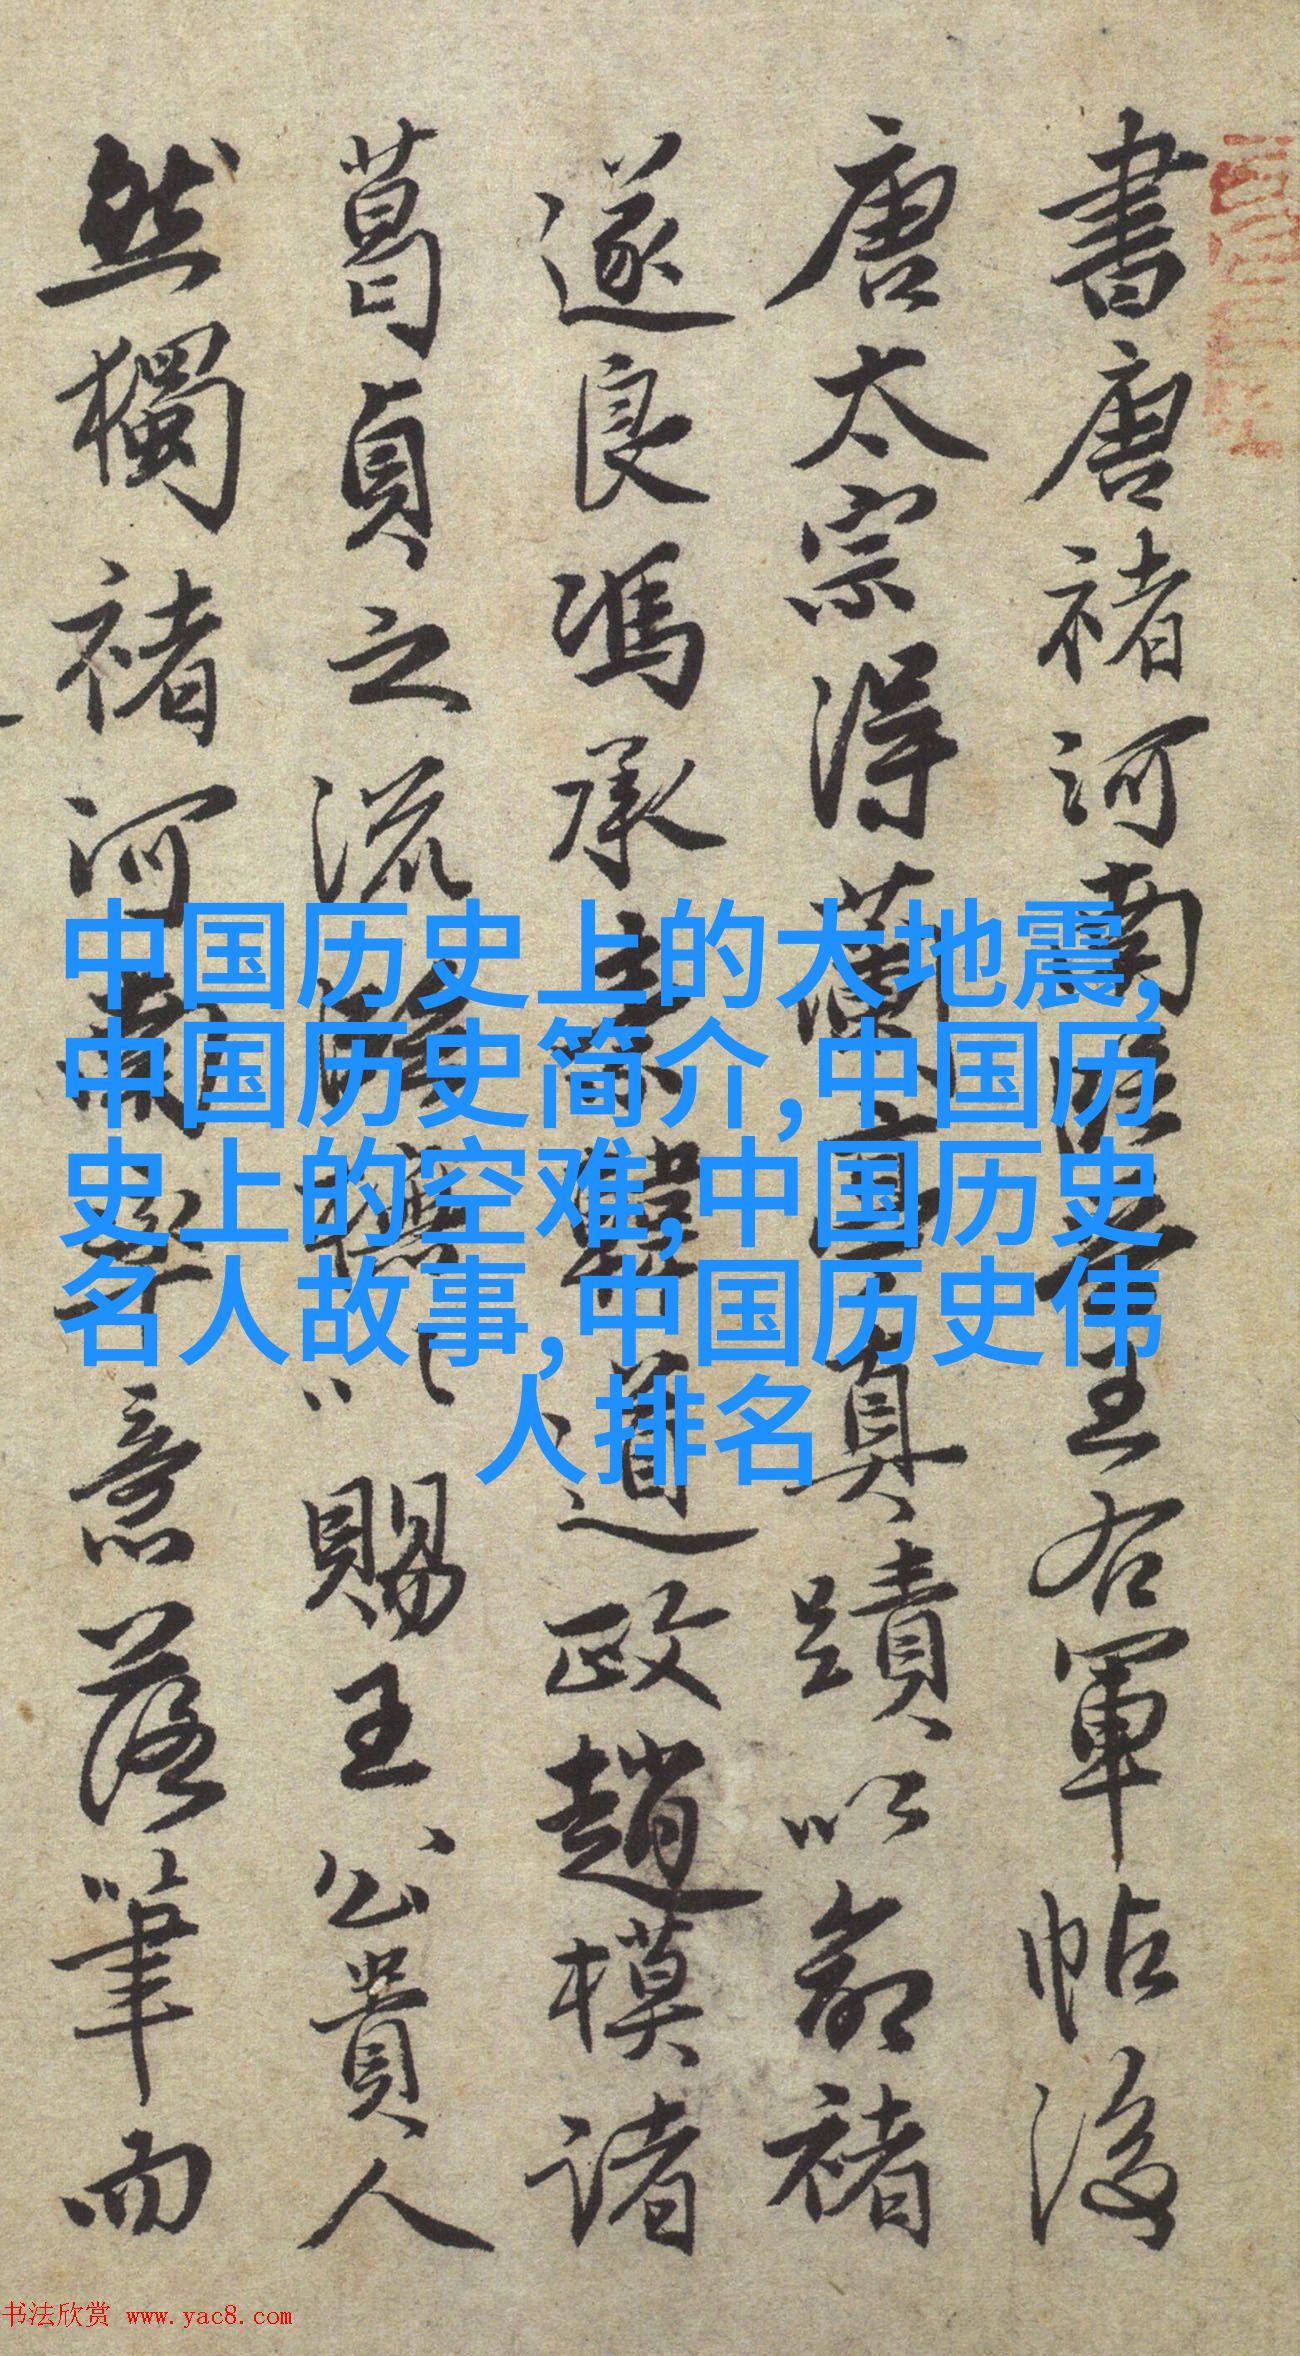 書唐褚河南臨王右軍帖後
唐太宗得蘭亭真蹟以命褚
遂良馮承素韓道政趙模諸
葛貞之流臨橅以賜王公貴人
然獨褚河南率意落筆而
中国历史上的大地震,
中国历史简介,中国历
史上的空难,中国历史
名人故事,中国历史伟
人排名
书法欣赏 www.yac8.com